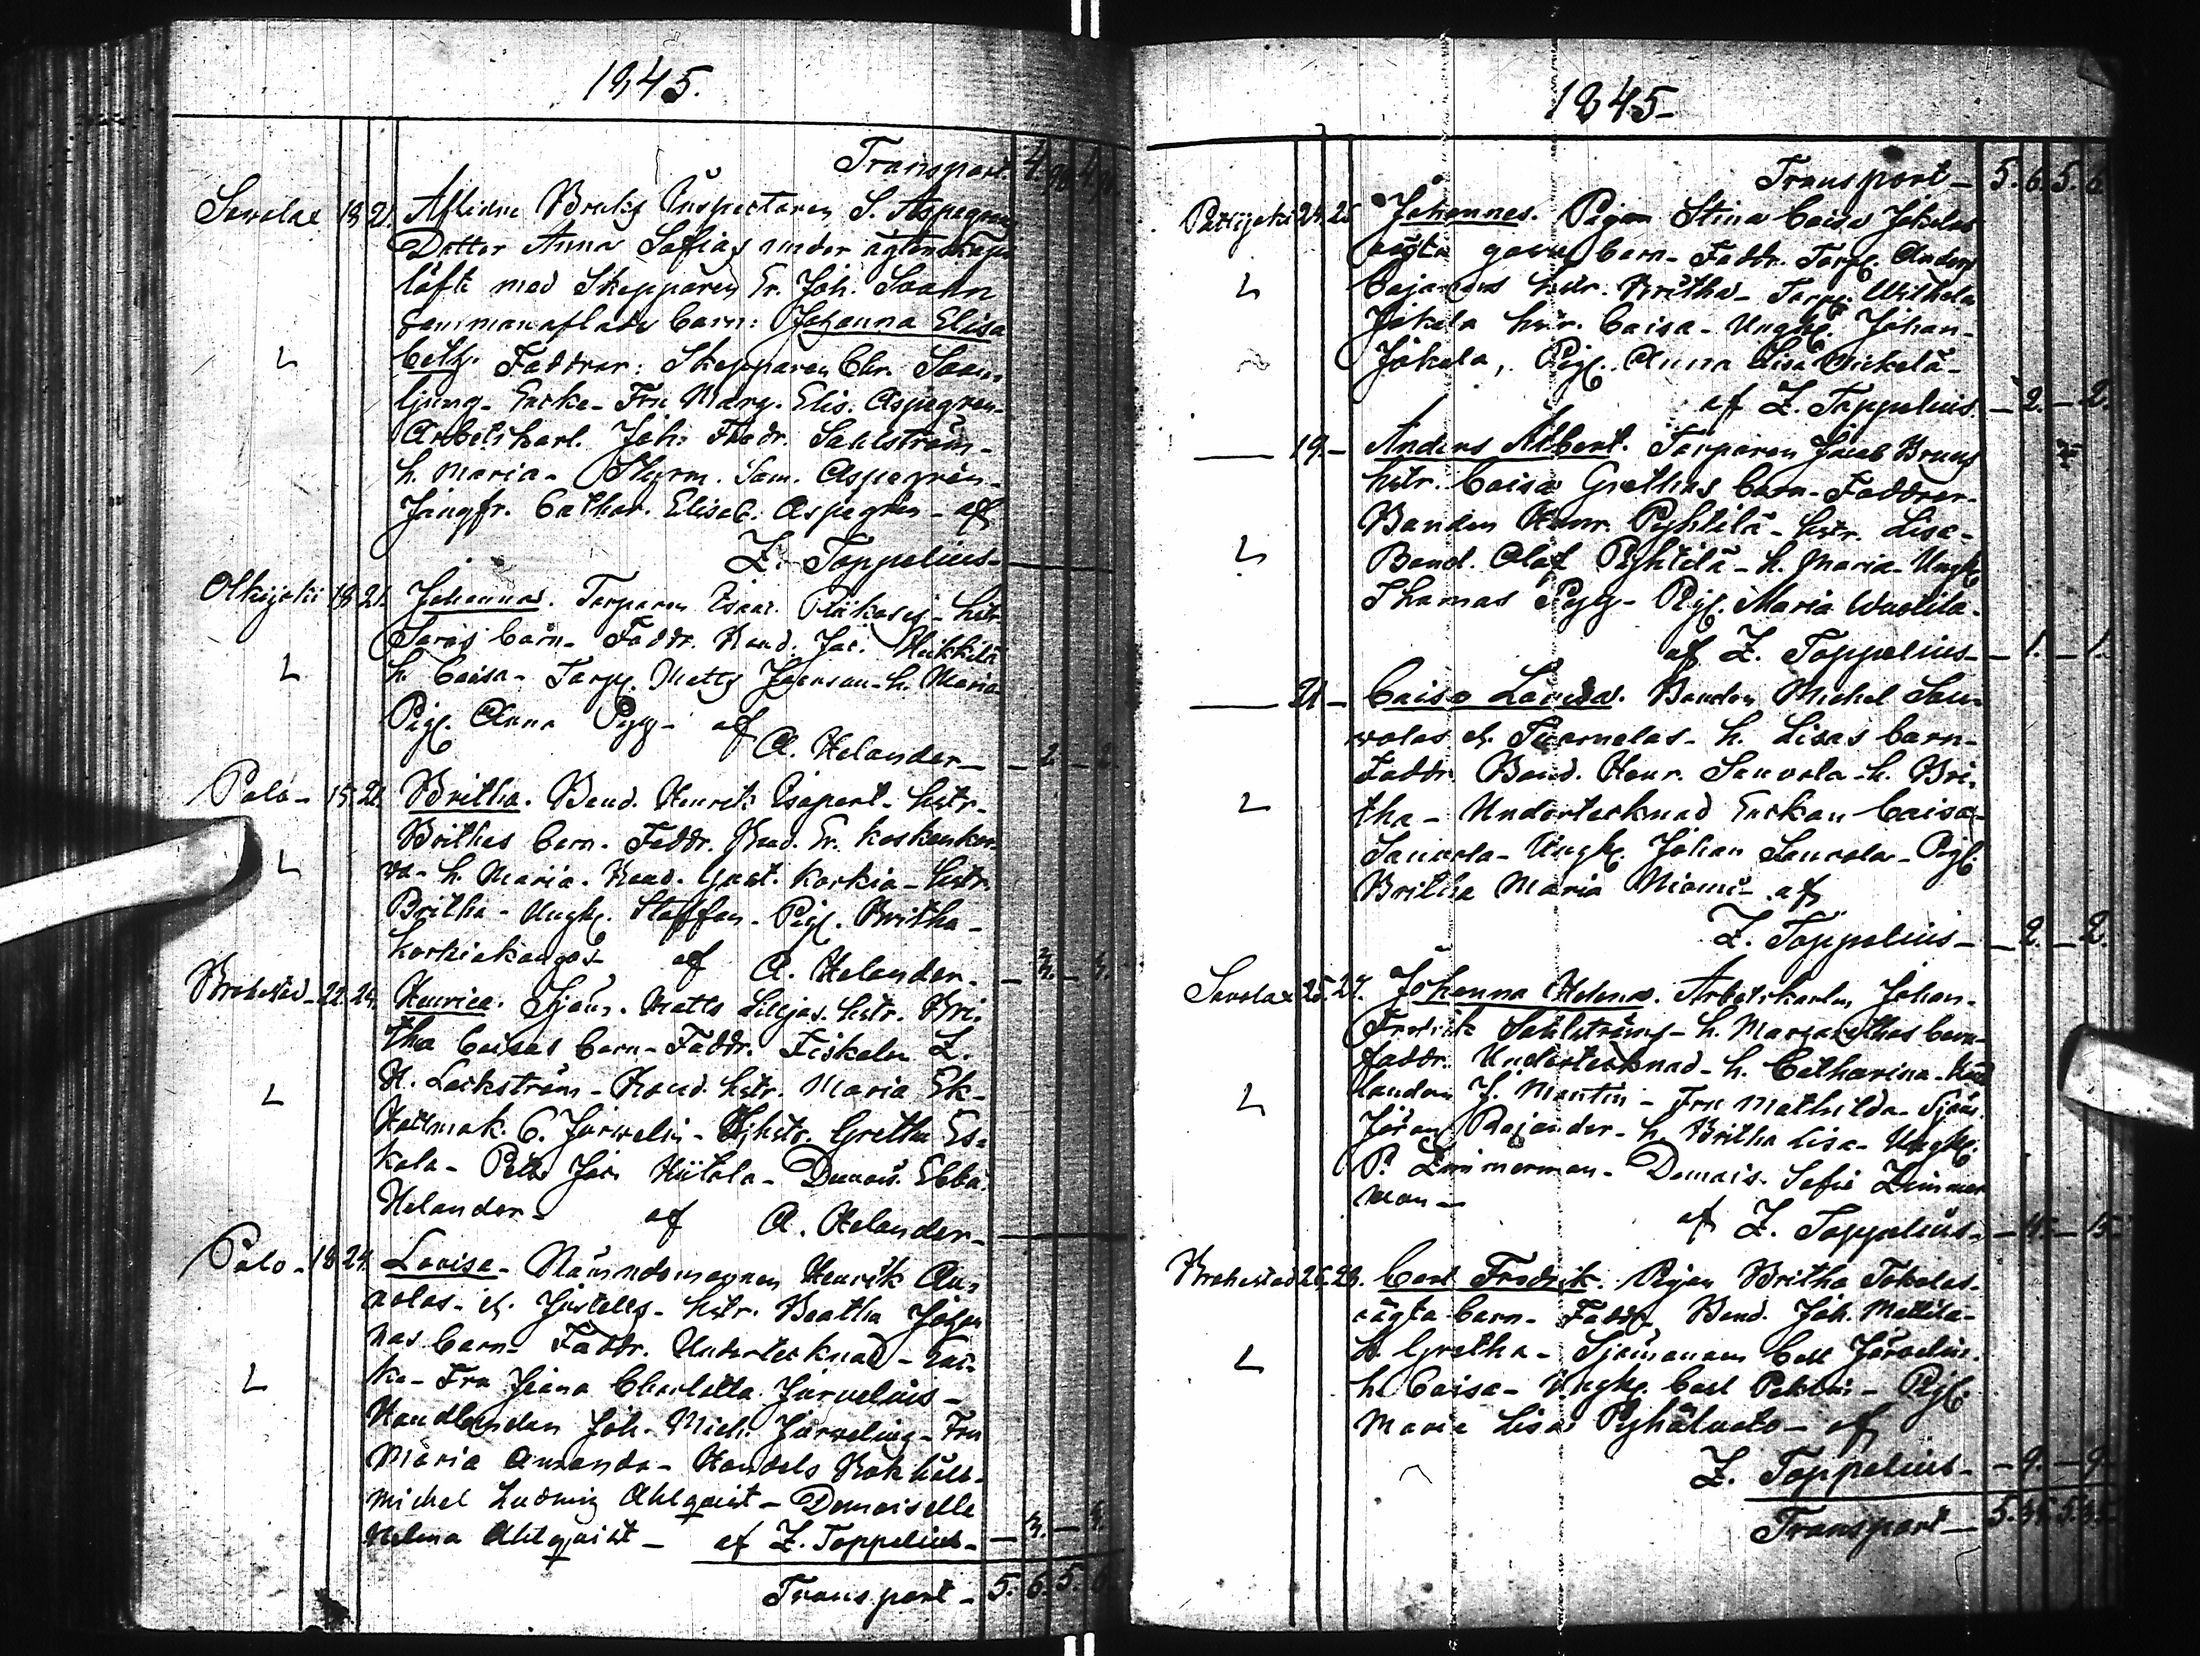 1845.
Transport 4.
Savolax 18 21. Aflidne Bruks Inspectoren S. Aspegrens
Dotter Anna Sofias under ägtenskaps
löfte med Skepparen Er. Joh.
sammanaflade barn: Johanna Elisa
beth. Faddrar: Skepparen Chr.
ljung - Enke- Fru Marg. Elis. Aspegren-
Arbetskarl. Joh: Fredr. Sahlström-
h. Maria - Styrm. Sam. Aspegrén-
Jungfr. Cathar. Elisab. Aspegrén - af
Z. Toppelius-
Olkijoki 18 21. Johanna. Torparen Isaac hstr
Saras barn - Faddr. Bond. Jac. Heikkilä
h. Caisa - Torp. Matts h. Maria
Pig. Anna Pyy - af
A. Helander - - 2 -
Palo - 15 21. Britha. Bond. Henrik hstr-
Brithas barn - Faddr. Bond. Er. Koskenkor-
va - h. Maria. Bond. Gust. Korkia - hstr.
Britha - Ungk. Staffan - Pig. Britha -
Korkiakangas - af A. Helander.
Brahestad - 22. 24. Henrica. Sjöm. Matts Liljas hstr. Bri-
tha Caisas barn - Faddr. Fiskalen Z.
H. Lackström - Hand. hstr. Maria Ek-
Hattmak. C. Jurvelin - hstr. Gretha Es-
kola - Joh. Hiitola - Demois. Ebba
Helander - af A. Helander -
Palo - 18 24. Lovisa - Nämndemannen Henrik An-
nolas - el. - hstr. Beatha Johan
nas barn - Faddr. Undertecknad - En-
ka - Fru Jeana Charlotta Jurvelius -
Handlanden Joh. Mich. Jurvelius - Fru
Maria Amanda - Handels Bokhåll-
Michel Ludvig Ahlqvist - Demoiselle
Helena Ahlqvist - af Z. Toppelius -
Transport - 5. 6. 5. 6
1845-
Transport - 5. 6. 5. 6
Pattijoki 24. 25 Johannes. Pigan Stina Caisa Jokelas
oägta barn - Faddr. Torp. Anders
hstr. Britha - Torp. Wilhelm
Jokela hstr. Caisa - Ungk. Johan -
Jokela, Pig. Anna Lisa Mickelä -
af Z. Toppelius - 2. - 2.
19. - Anders Albert. Torparen Jacob Bruus
hstr. Caisa Grethas barn - Faddrar -
Bonden Henr. Pyhtilä - hstr. Lisa -
Bond. Olof Pyhtilä - h. Maria - Ungk
Thomas Pyy - Pig. Maria Wuolila -
af Z. Toppelius - - 1. - 1.
21 - Caisa Lovisa. Bonden Michel Sau-
volas el. Tuomelas - h. Lisas barn -
Faddr. Bond. Henr. Sauvola - h. Bri-
tha - Undertecknad Enkan Caisa -
Sauvola - Ungk. Johan Sauvola - Pig.
Britha Maria Niemi - af
Z. Toppelius - - 2. - 2.
Savolax 25. 27. Johanna Helena. Arbetskarlen Johan -
Fredrik Sahlströms - h. Margarethas barn -
Faddr. Undertecknad - h. Catharina - Hand
landen J. Montin - Fru Mathilda - Sjöm.
Jöran Rajander - h. Britha Lisa - Ungk.
P. Zimmerman - Demois. Sofie Zimmer
man -
af Z. Toppelius - - 15 - 15 -
Brahestad 26. 28. Carl Fredrik. Pigan Britha Tokolas -
oägta barn - Faddr. Bond. Joh. Mattila -
h. Gretha - Sjömannen Carl Jurvelin.
h. Caisa - Ungk. Carl - Pig.
Maria Lisa Pyhäluoto - af
Z. Toppelius - - 9. - 9 -
Transport - 5. 35. 5. 35